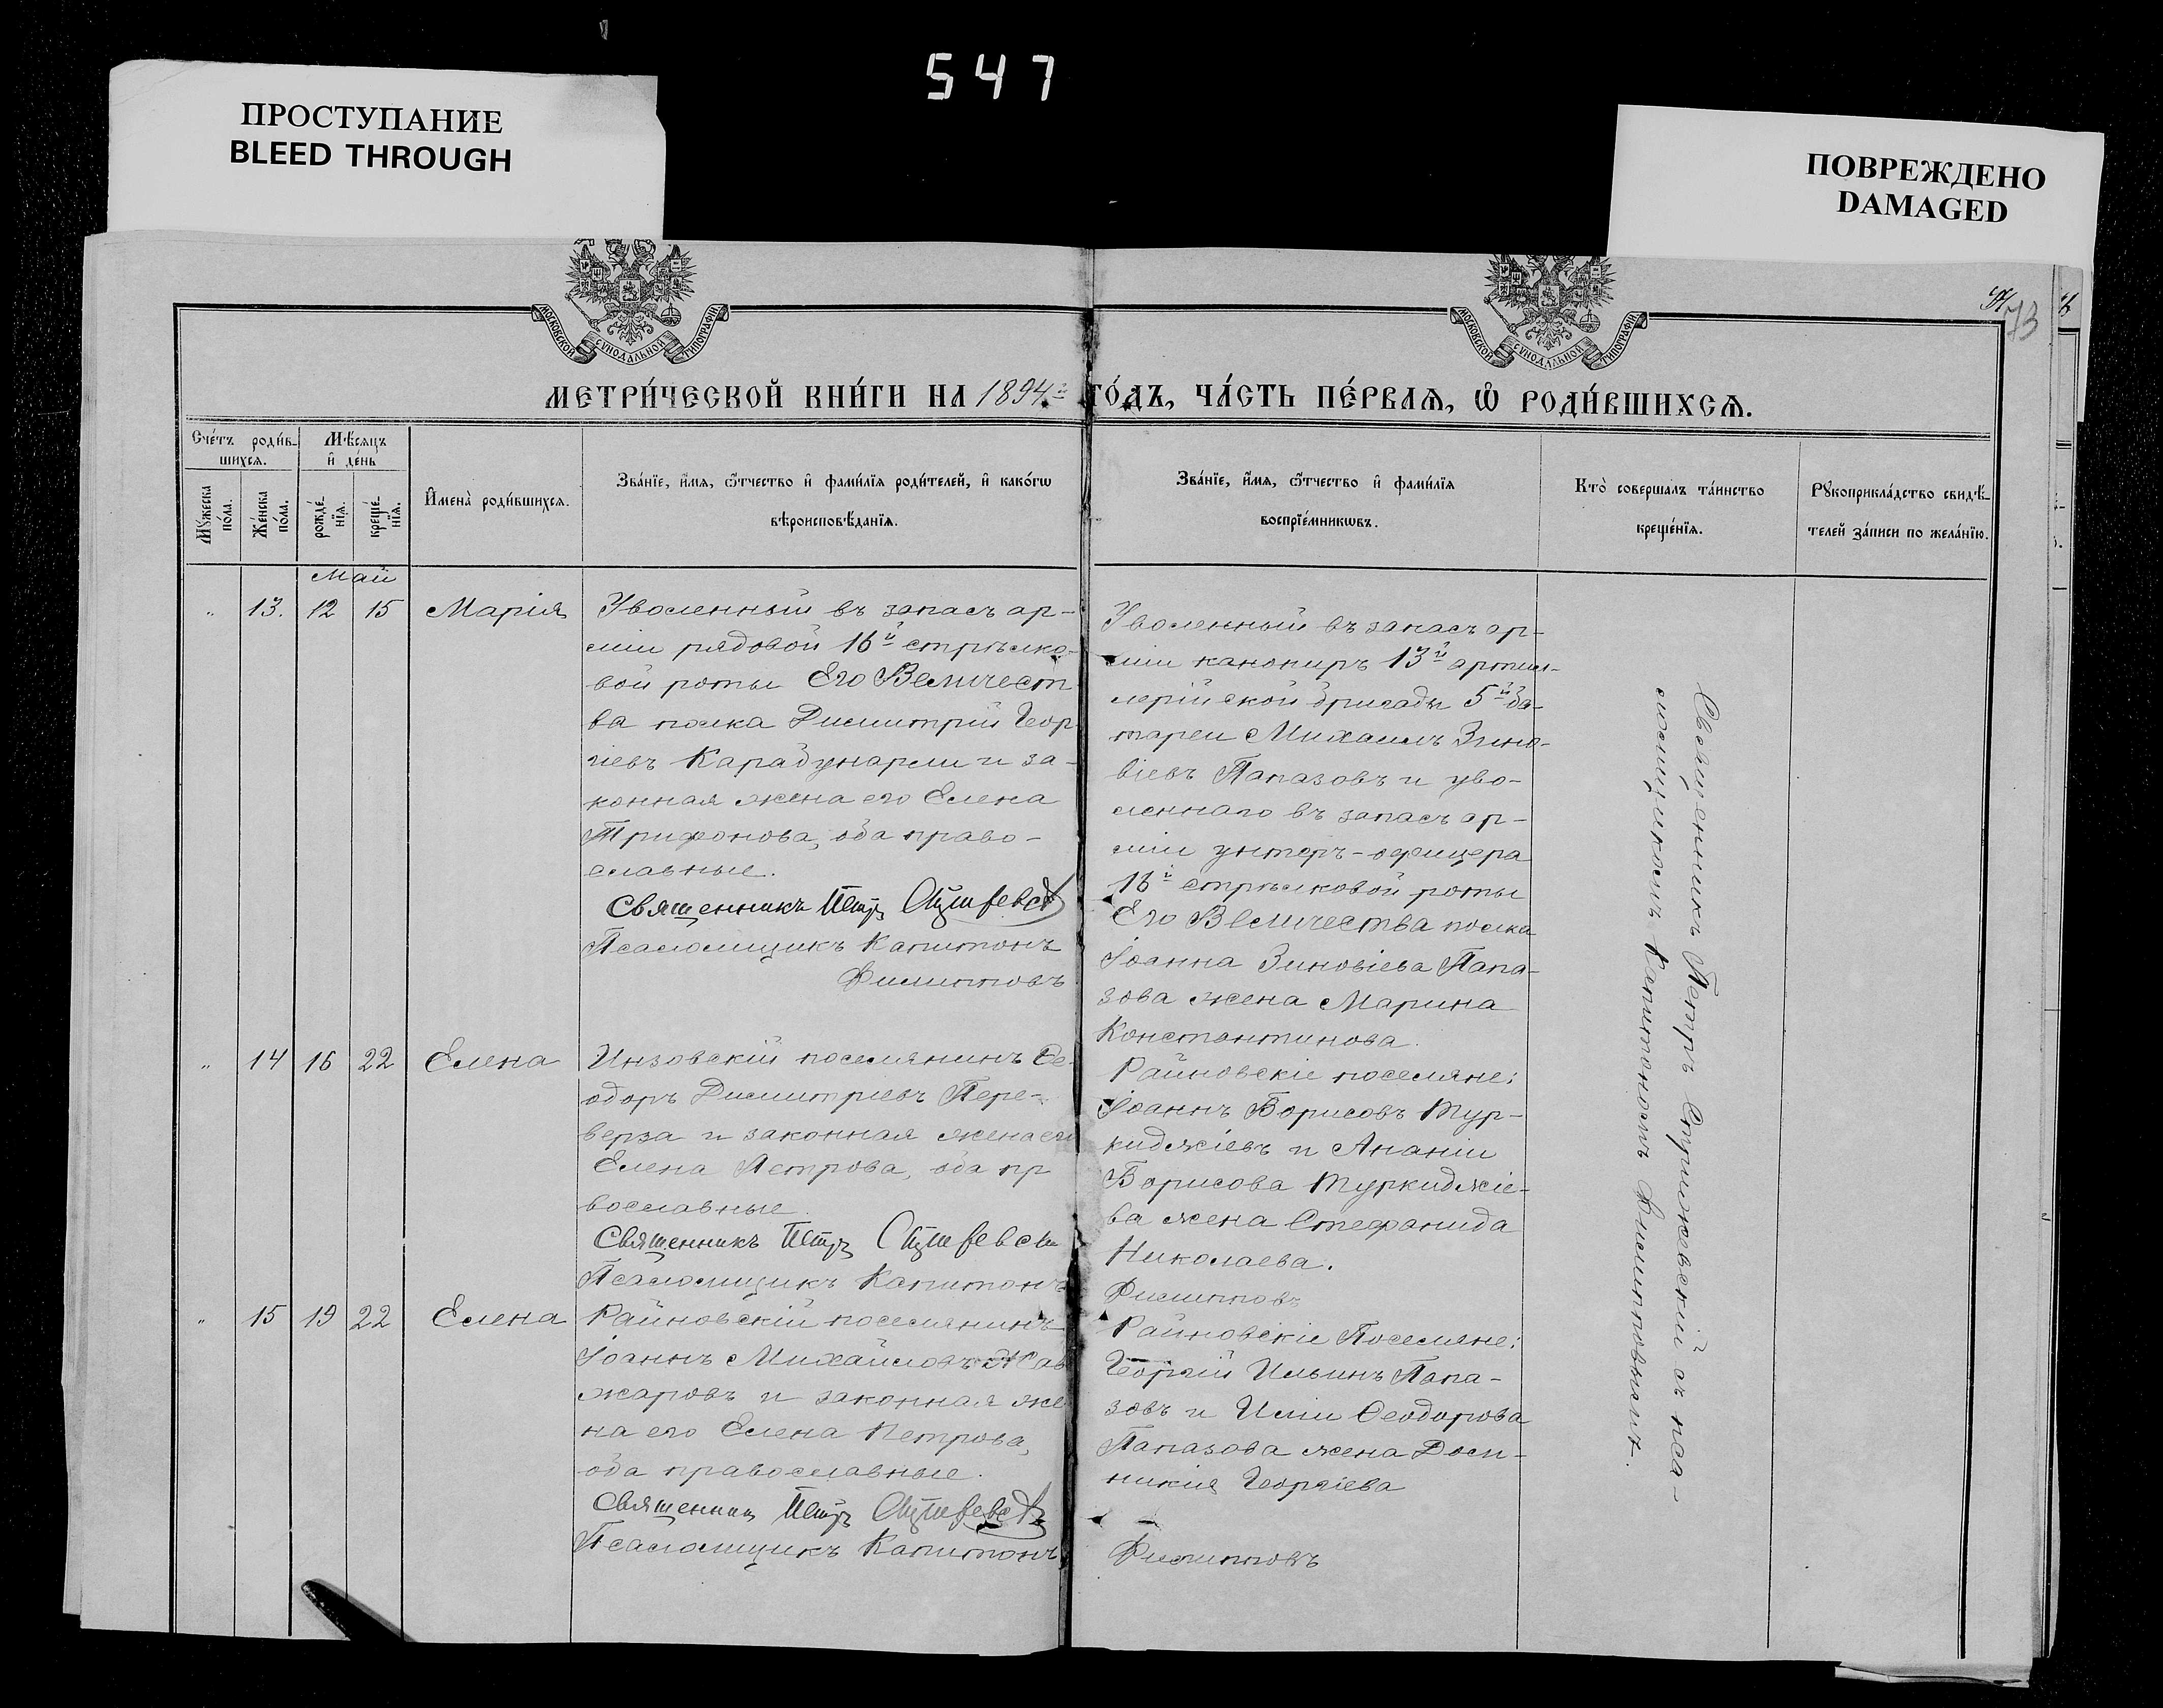 547
ПРОСТУПАНИЕ
BLEED THROUGH
ПОВРЕЖДЕНО
DAMAGED
МОСКОВСКОЙ СѴНОДАЛЬНОЙ ТИПОГРАФІИ
МОСКОВСКОЙ СѴНОДАЛЬНОЙ ТИПОГРАФІИ
73
МЕТРИ́ЧЕСКОЙ КНИ́ГИ НА 1894 й ГО́ДЪ, ЧА́СТЬ ПЕ́РВАѦ, Ѽ РОДИ́ВШИХСѦ.
Сче́тъ роди́в-
шихсѧ.
Мѣ́сѧцъ
и҆ де́нь
Мꙋ́жеска
по́ла.
Же́нска
по́ла.
рожде́-
нїѧ.
креще́-
нїѧ.
И҆мена̀ роди́вшихсѧ.
Зва́нїе, и҆́мѧ, ѻ҆́тчество и҆ фами́лїѧ роди́телей, и҆ како́гѡ
вѣроисповѣ́данїѧ.
Зва́нїе, и҆́мѧ, ѻ҆́тчество и҆ фами́лїѧ
воспрїе́мникѡвъ.
Кто̀ совершалъ та́инство
креще́нїѧ.
Рꙋкоприкла́дство свидѣ́-
телей за́писи по жела́нїю.
Май
" 13. 12 15 Марія
Уволенный въ запасъ ар-
міи рядовой 16й стрѣлко-
вой роты Его Величест
ва полка Димитрій Геор
гіевъ Карадунарли и за-
конная жена его Елена
Трифонова, оба право-
славные.
Священникъ Петръ
Псаломщикъ Капитонъ
Филипповъ
Уволенный въ запасъ ар-
міи канониръ 13й артил-
лерійской бригады 5й ба-
тареи Михаилъ Зино-
віевъ Папазовъ и уво-
леннаго въ запасъ ар-
міи унтеръ-офицера
16й стрѣлковой роты
Его Величества полка
Іоанна Зиновіева Папа-
зова жена Марина
Константинова.
" 14 16 22 Елена
Инзовскій поселянинъ Ѳе-
одоръ Димитріевъ Пере-
верза и законная жена его
Елена Петрова, оба пр
вославные.
Священникъ Петръ
Псаломщикъ Капитонъ
Райновскіе поселяне:
Іоаннъ Борисовъ Тур-
киджіевъ и Ананіи
Борисова Туркиджіе-
ва жена Стефанида
Николаева.
Филипповъ
" 15 19 22 Елена
Райновскій поселянинъ
Іоаннъ Михайловъ
жаровъ и законная же
на его Елена Петрова,
оба православные.
Священник Петръ
Псаломщикъ Капитонъ
Райновскіе Поселяне:
Георгій Ильинъ Папа-
зовъ и Иліи Ѳеодорова
Папазова жена Доми-
никія Георгіева
Филипповъ
Священникъ Петръ съ пса-
ломщикомъ Капитономъ Филипповымъ.